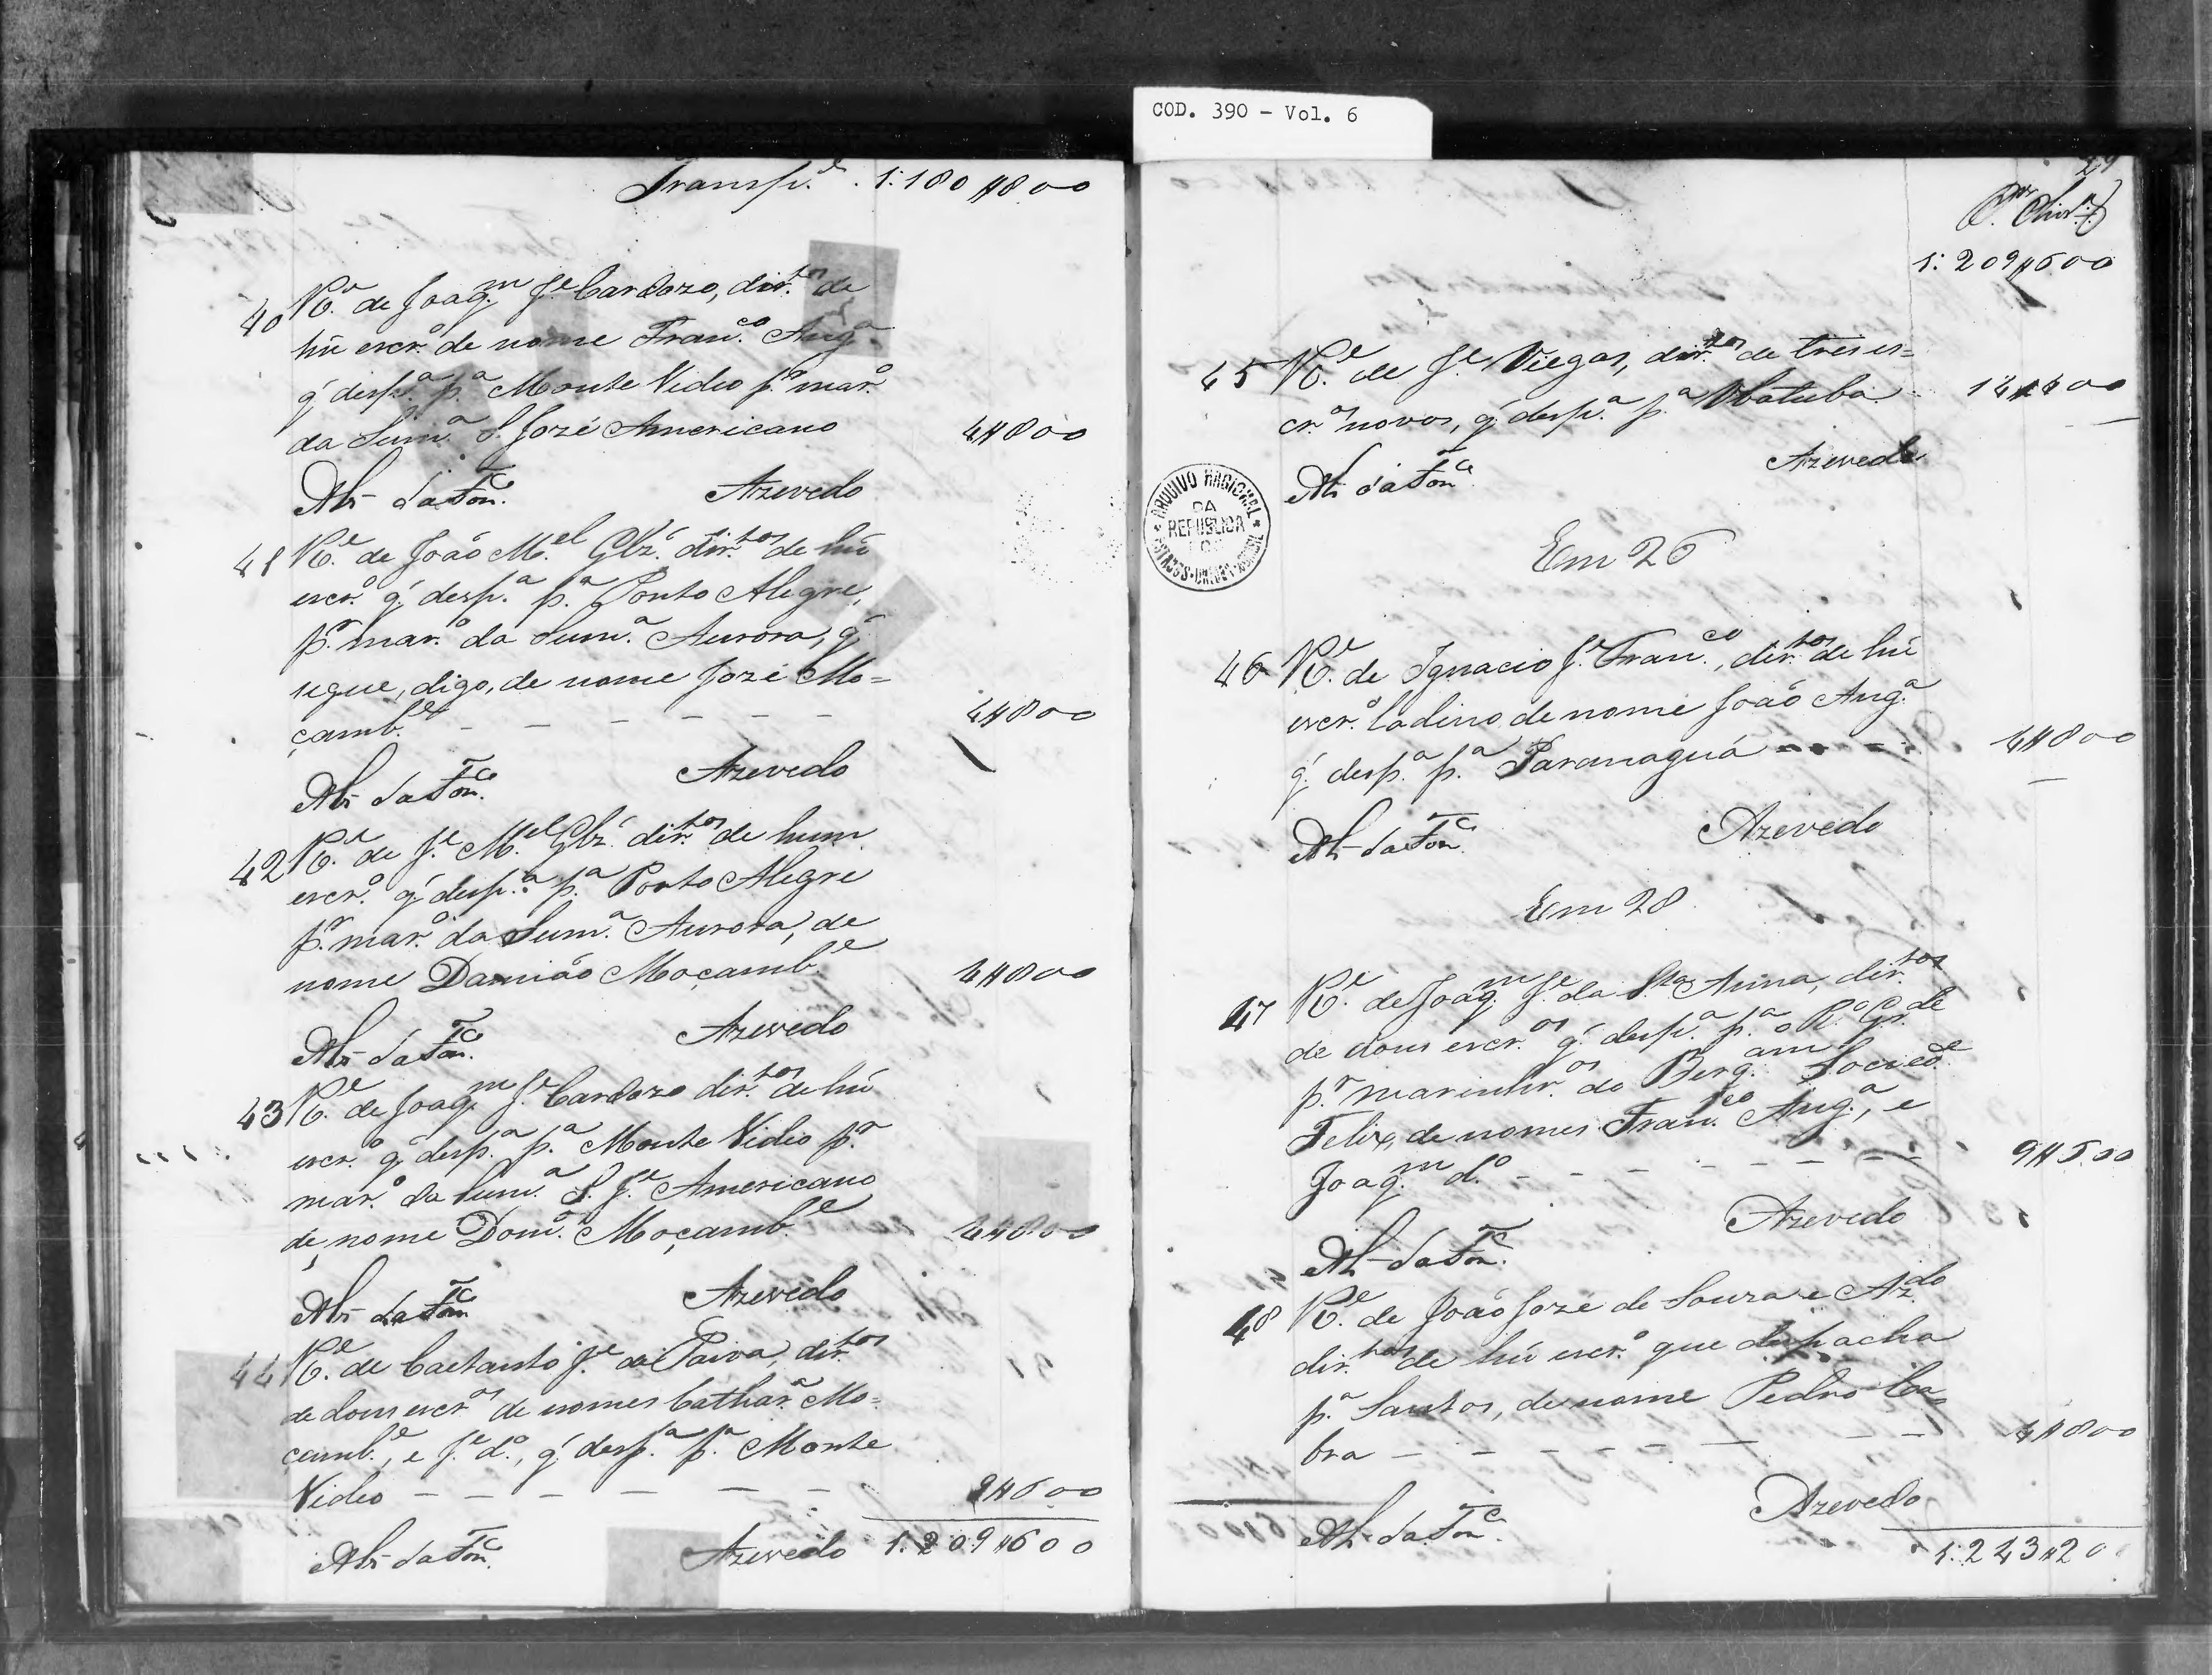 COD. 390 - Vol. 6
Transp.e 1:180$800
40 R.e de Joaq.m J.e Cardozo, dir.tos de
hũ escr.o de nome Fran.co Ang.a
q' desp.a p.a Monte Video p.r mar.o
da Sum.a S. Jozé Americano 4$800
da Fon.ca Azevedo
41 R.e de João M.el Glz.' dir.tos de hũ
escr.o q' desp.a p.a Porto Alegre,
p.r mar.o da Sum.a Aurora, q'
segue, digo, de nome Jozé Mo=
çamb.e - - - - - - 4$800
da Fon.ca Azevedo
42 R.e de J.e M.el Glz.' dir.tos de hum
escr.o q' desp.a p.a Porto Alegre
p.r mar.o da Sum.a Aurora, de
nome Damião Moçamb.e 4$800
da Fon.ca Azevedo
43 R.e de Joaq.m J.e Cardozo dir.tos de hũ
escr.o q' desp.a p.a Monte Video p.r
mar.o da Sum.a S. J.e Americano
de nome Dom.o Moçamb.e 4$800
da Fon.ca Azevedo
44 R.e de Caetanto J.e da Paiva, dir.tos
de dous escr.os de nomes Cathar.a Mo=
çamb.e, e J.e d.o, q' desp.a p.a Monte
Video - - - - - - 9$600
da Fon.ca Azevedo 1:209$600
29
1:209$600
45 R.e de J.e Viegas, dir.tos de tres es=
cr.os novos, q' desp.a p.a Ubatuba 14$400
da Fon.ca Azevedo
ARQUIVO NACIONAL
DA
REPUBLICA
DOS
ESTADOS-UNIDOS-BRASIL
Em 26
46 R.e de Ignacio J.e Fran.co, dir.tos de hũ
escr.o ladino de nome João Ang.a
q' desp.a p.a Paranaguá - - - 4$800
da Fon.ca Azevedo
Em 28
47 R.e de Joaq.m J.e da S.ta Anna, dir.tos
de dous escr.os q' desp.a p.a o R.o G.de
p.r marinhr.os do Berg.am Socied.e
Felix, de nomes Fran.co Ang.a, e
Joaq.m d.o - - - - - - - 9$600
da Fon.ca Azevedo
48 R.e de João Jozé de Souza e Az.do
dir.tos de hũ escr.o que despacha
p.a Santos, de nome Pedro Ca=
bra - - - - - - - - 4$800
da Fon.ca Azevedo
1:243$20